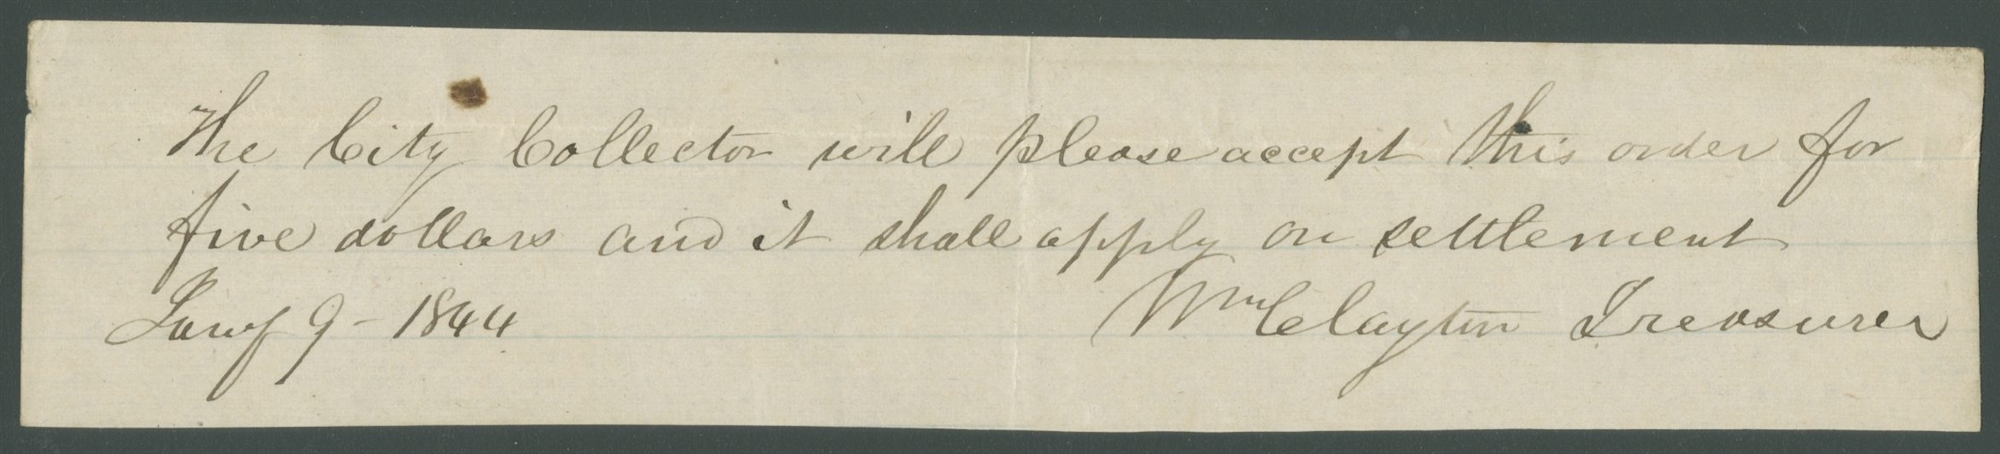 The City Collector will please accept this order for
five dollars and it shall apply on settlement
Jany 9 - 1844
Wm Clayton Treasurer